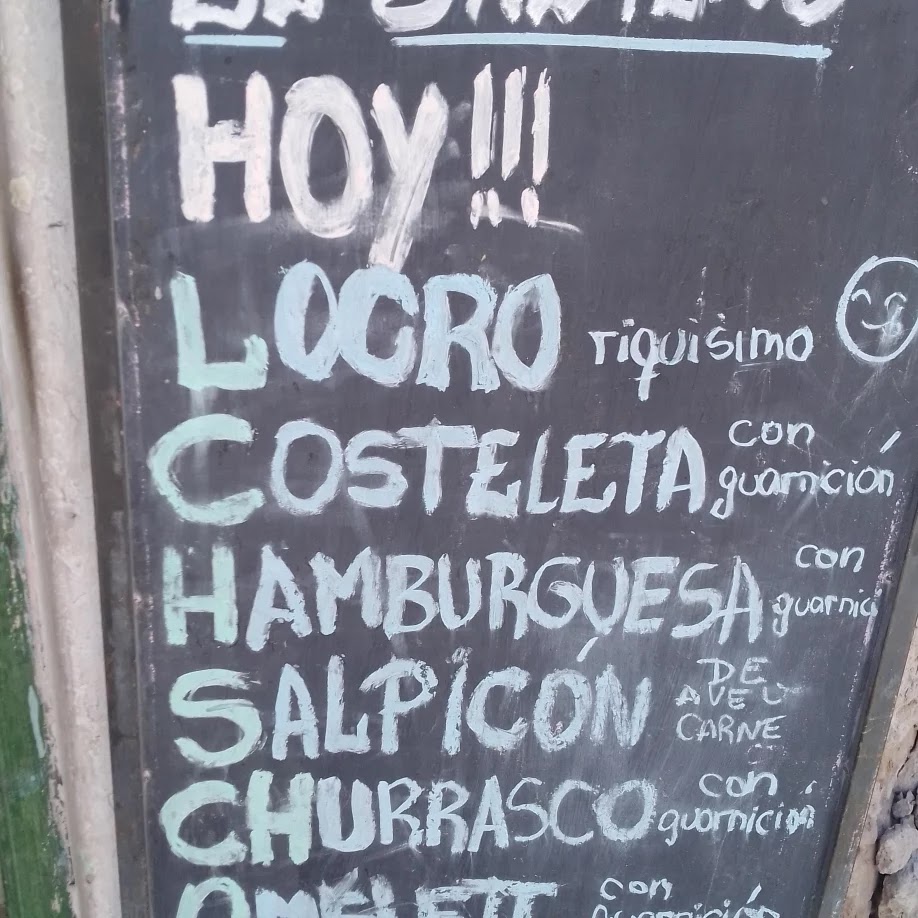 HOY!!!
LOCRO riquisimo
COSTELETA con guarnición
HAMBURGUESA con guarnic
SALPICÓN DE AVE U CARNE
CHURRASCO con guarnición
OMELETT con guarnición